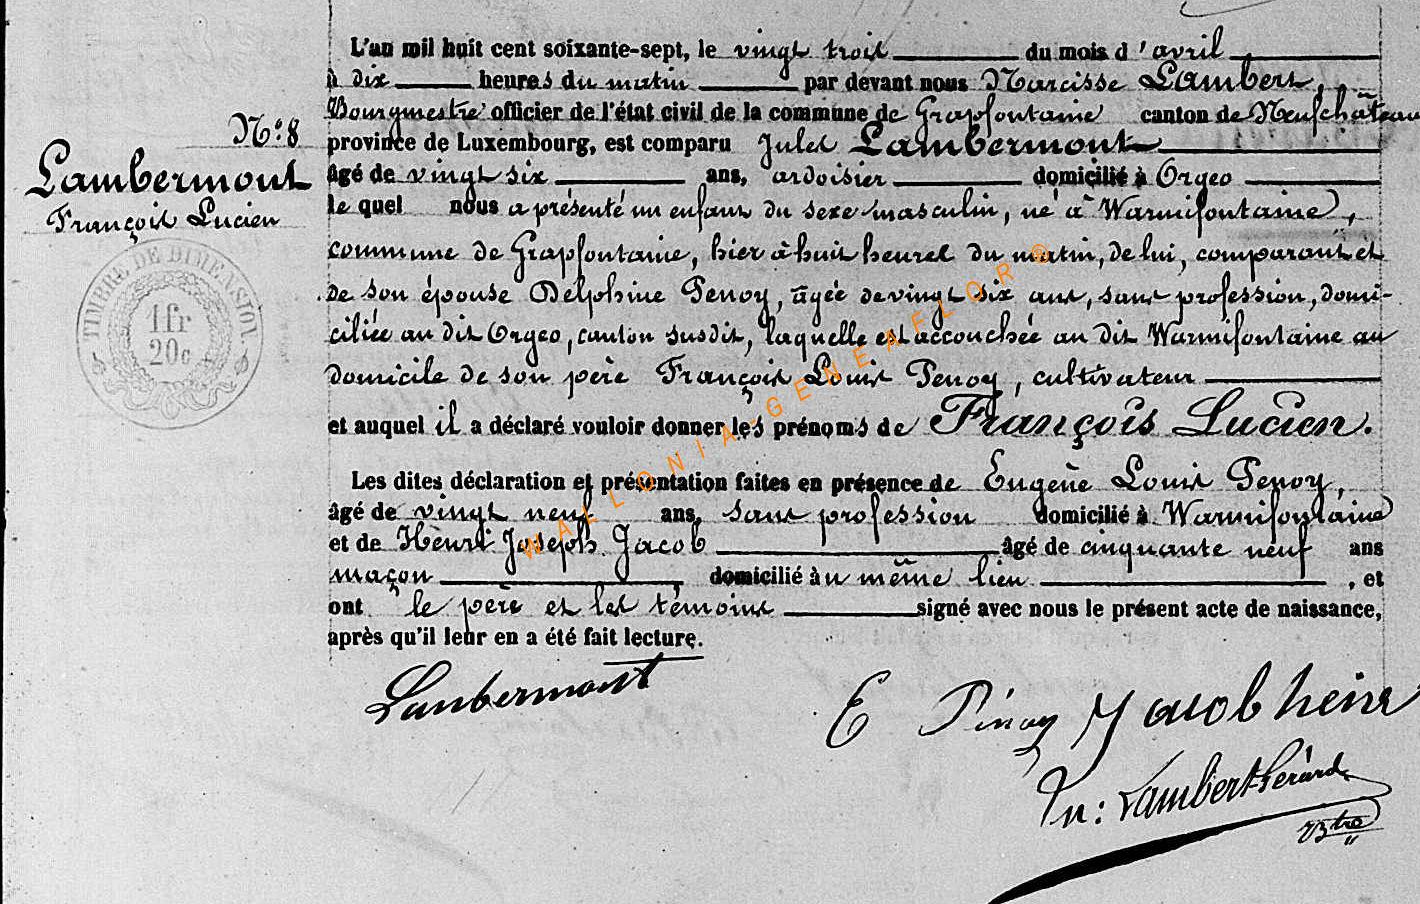 L'an mil huit cent soixante-sept, le vingt trois du mois d'avril
à dix heures du matin par devant nous Narcisse Lambert,
Bourgmestre officier de l'état civil de la commune de Grapfontaine canton de Neufchâteau
province de Luxembourg, est comparu Jules Lambermont
âgé de vingt six ans, ardoisier domicilié à Orgeo
le quel nous a présenté un enfant du sexe masculin, né à Warmifontaine,
commune de Grapfontaine, hier à huit heures du matin, de lui, comparant et
de son épouse Delphine Penoy, âgée de vingt six ans, sans profession, domi-
ciliée au dit Orgeo, canton susdit, laquelle est accouchée au dit Warmifontaine au
domicile de son père François Louis Penoy, cultivateur
et auquel il a déclaré vouloir donner les prénoms de François Lucien.
Les dites déclaration et présentation faites en présence de Eugène Louis Penoy,
âgé de vingt neuf ans, sans profession domicilié à Warmifontaine
et de Henri Joseph Jacob âgé de cinquante neuf ans
maçon, domicilié au même lieu, et
ont le père et les témoins signé avec nous le présent acte de naissance,
après qu'il leur en a été fait lecture.
N° 8
Lambermont
François Lucien
TIMBRE DE DIMENSION
1fr
20c
WALLONIA-GENEAFLOR ©
Lambermont
E Pinoy Jacob henri
N: Lambert-Gérard
Btre